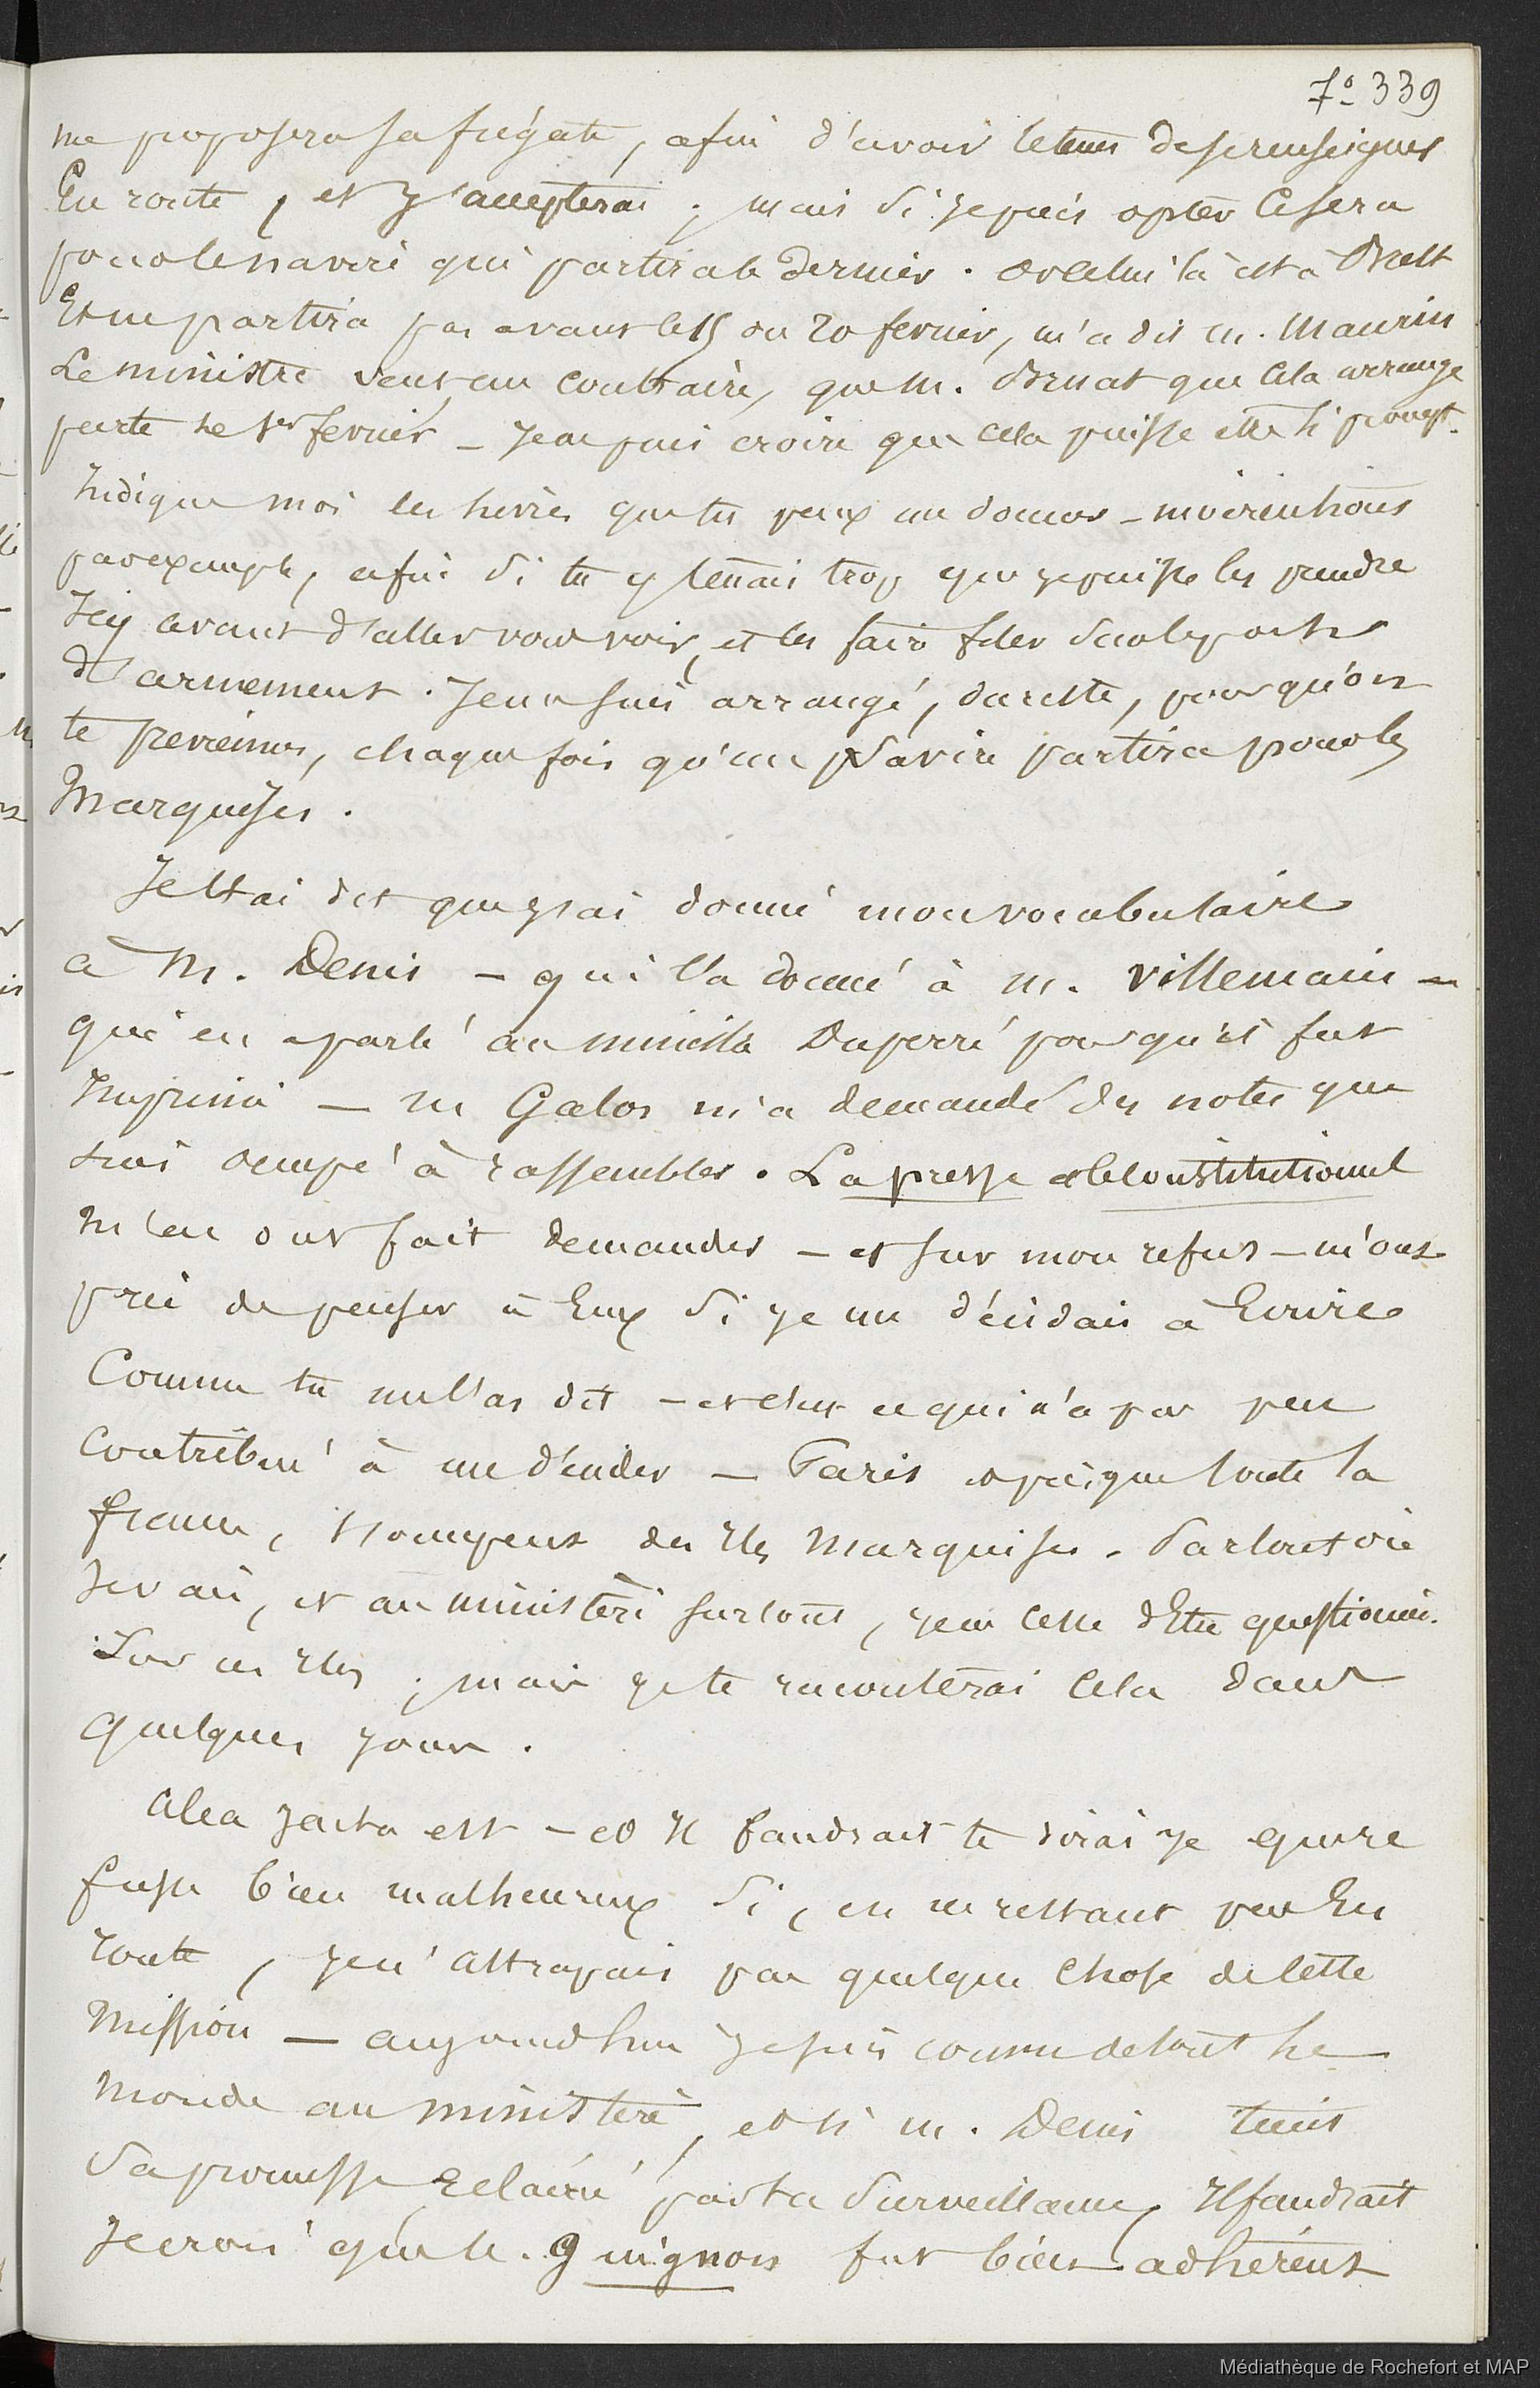 fo 339
me proposera sa frégate, afin d'avoir le tems de se renseigner
En route, et j'accepterai ; mais si je puis opter Ce sera
pour le navire qui partira le dernier . or celui là est à Brest
Et ne partira pas avant le 15 ou 20 fevrier, m'a dit m. Maurin
Le ministre veut, au contraire, que M. Bruat que Cela arrange
parte le 1er fevrier – Je ne puis croire que cela puisse être si prompt.
Indique moi les livres que tu peux me donner –
par exemple, afin si tu y tenais trop que je puisse les prendre
Icy avant d'aller vous voir, et les faire filer sur les ports
d'armement . Je me suis arrangé, du reste, pour qu'on
te previenne, chaque fois qu'un Navire partira pour les
Marquises .
Je t'ai dit que j'ai donné mon vocabulaire
à M. Denis – qui l'a donné à m. Villemain –
qui en a parlé au ministre Duperré pour qu'il fut
Imprimé – M Galos m'a demandé des notes que
suis occupé à rassembler . La presse et le Constitutionnel
m'en ont fait demander – et sur mon refus – m'ont
prié de penser à Eux si je me décidais à Ecrire
Comme tu me l'as dit – et c'est ce qui n'a pas peu
Contribué à me décider – Paris ainsi que toute la
france, s'occupent des Iles Marquises . Partout où
Je vais, et au ministère surtout, je ne Cesse d'Etre questionné.
Sur ces Iles ; mais je te raconterai Cela dans
quelques jours .
Alea jacta est – et Il faudrait te dirai je que je
fusse bien malheureux si, en ne restant pas En
route, je n'attrapais pas quelque Chose de Cette
Mission – aujourd'hui je suis connu de tout le
Monde au ministère, et si m. Denis tient
Sa promesse Eclairé par ta Surveillance, Il faudrait
Je crois que le guignon fut bien adhérent
Médiathèque de Rochefort et MAP